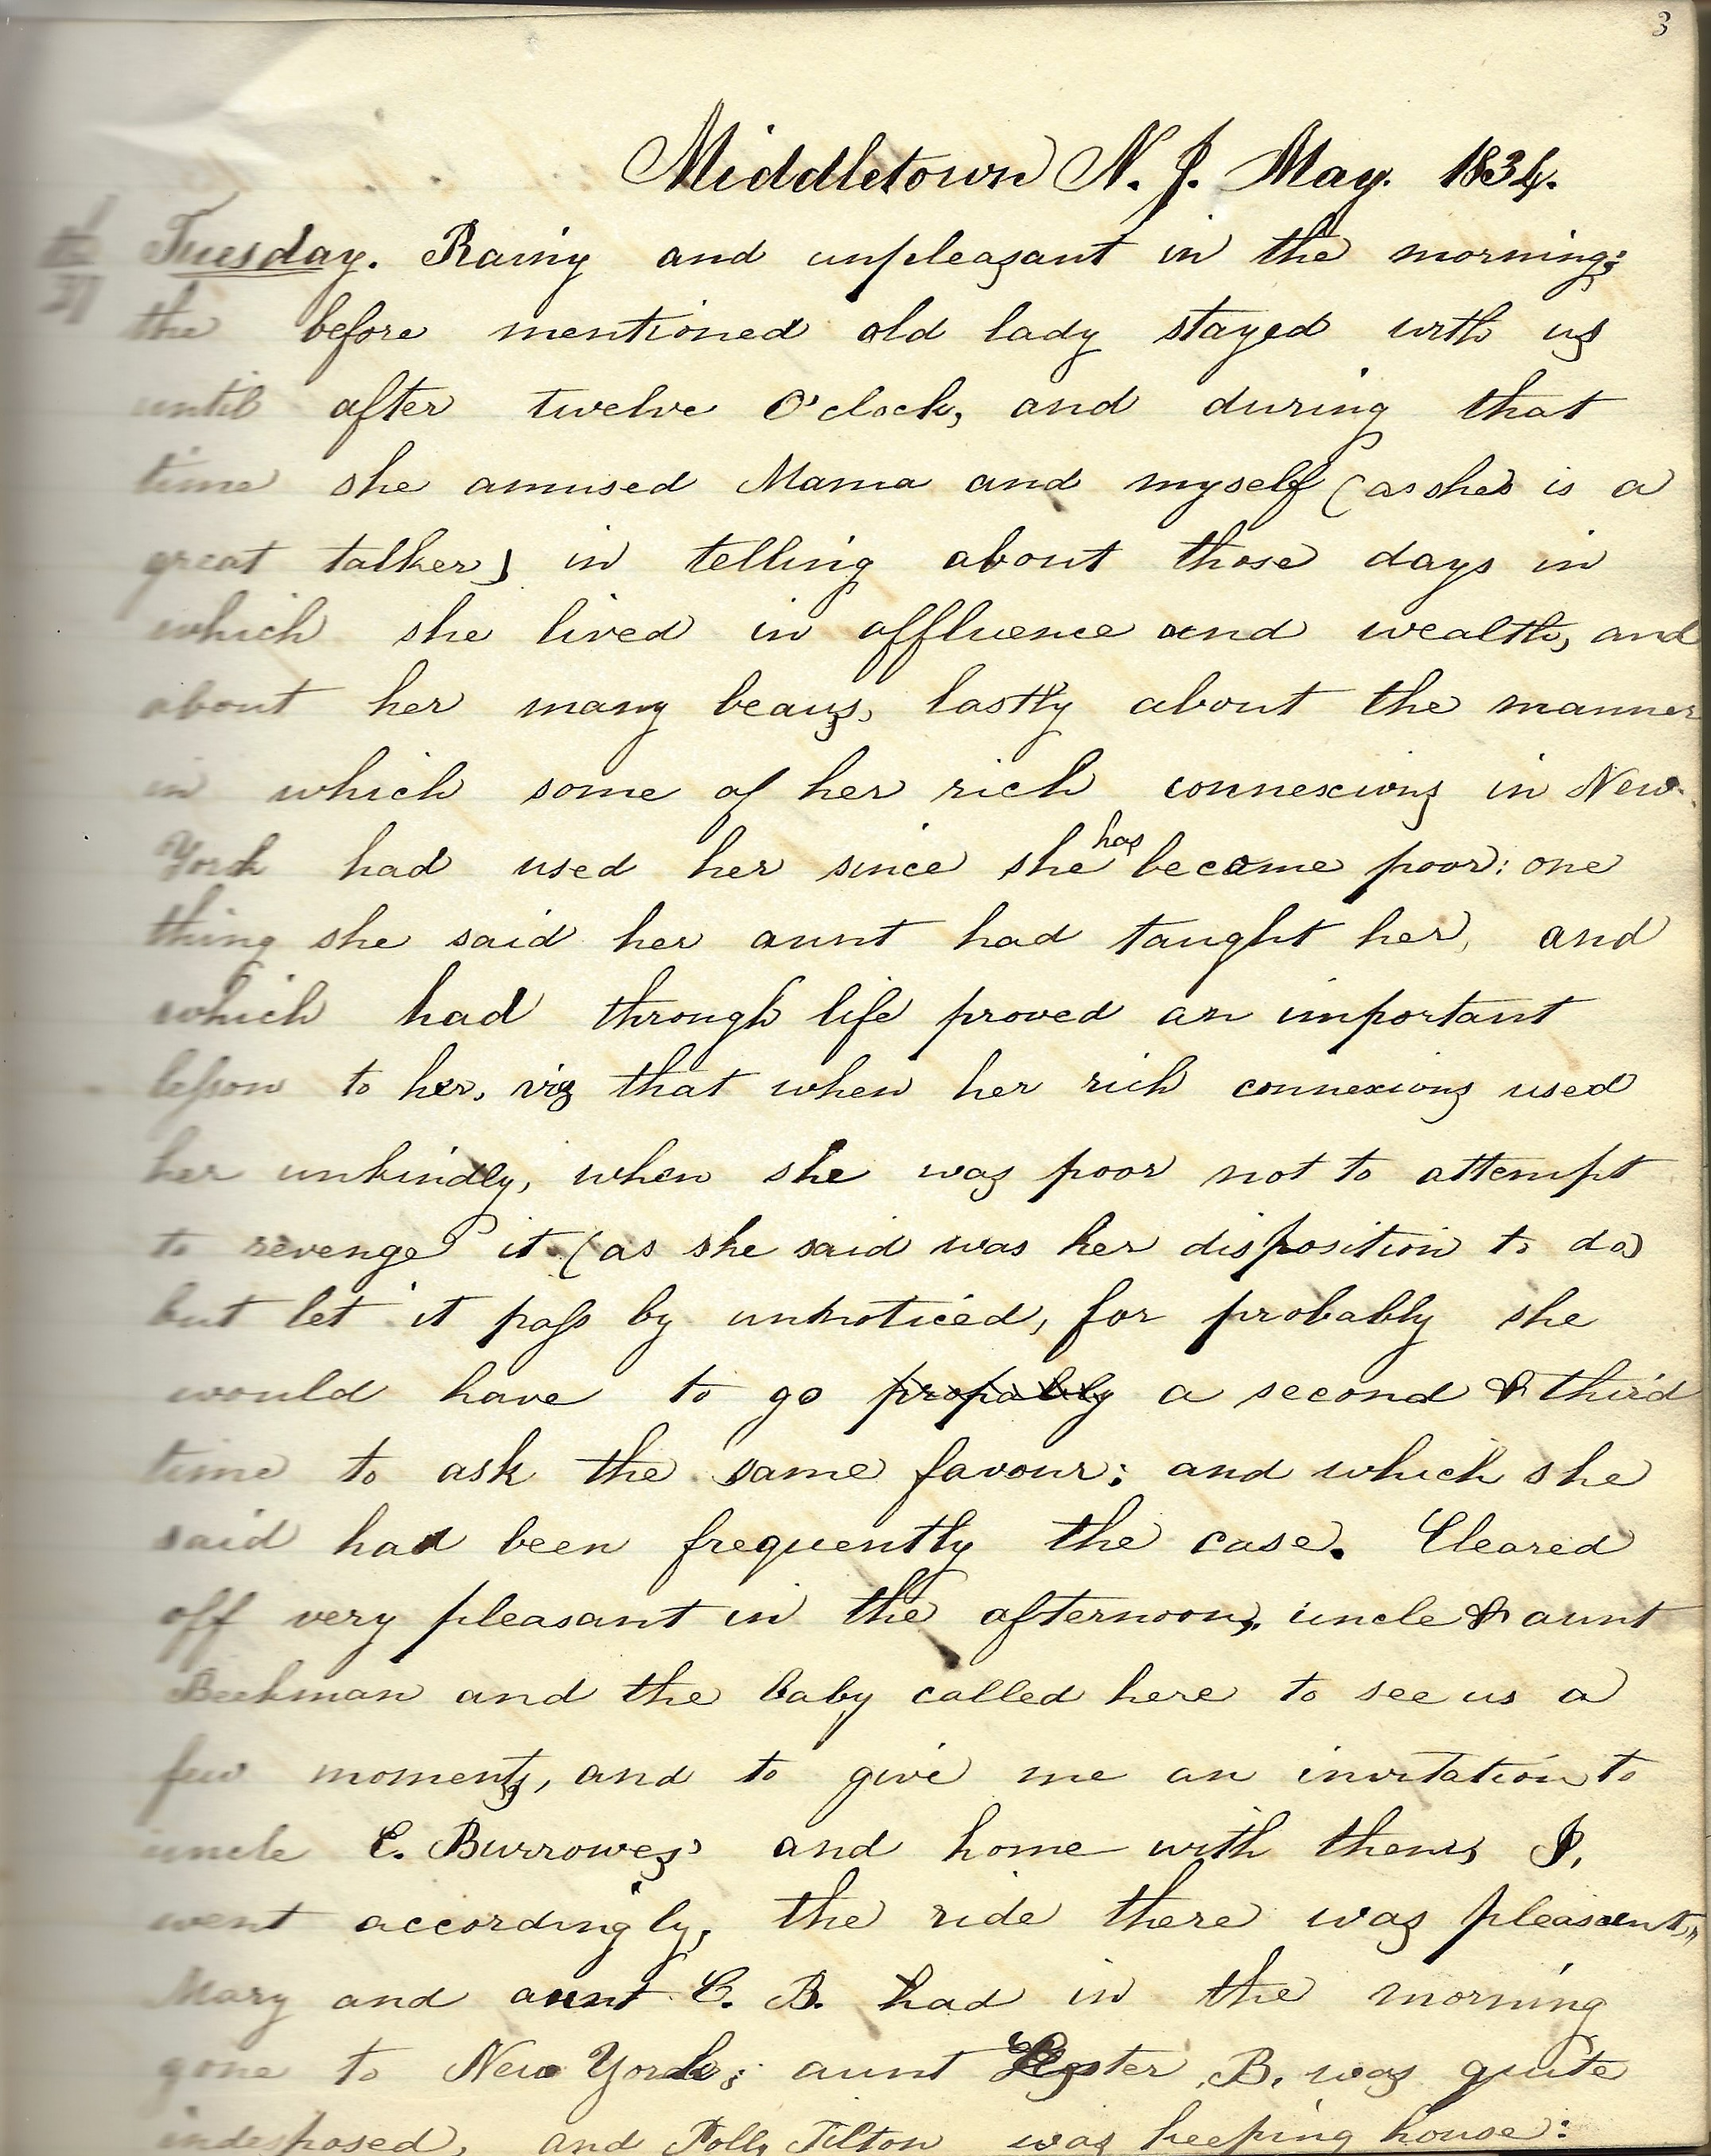 3
Middletown N. J. May. 1834.
Tuesday. Rainy and unpleasant in the morning;
the before mentioned old lady stayed with us
until after twelve O'clock, and during that
time she amused Mama and myself (as she is a
great talker) in telling about those days in
which she lived in affluence and wealth, and
about her many beaus, lastly about the manner
in which some of her rich connexions in New-
York had used her since she has become poor: one
thing she said her aunt had taught her, and
which had through life proved an important
lesson to her, viz that when her rich connexions used
her unkindly, when she was poor not to attempt
to revenge it (as she said was her disposition to do)
but let it pass by unnoticed, for probably she
would have to go propably a second & third
time to ask the same favour; and which she
said had been frequently the case. Cleared
off very pleasant in the afternoon, uncle & aunt
Beekman and the baby called here to see us a
few moments, and to give me an invitation to
uncle E. Burrowes' and home with them, I,
went accordingly, the ride there was pleasant,
Mary and aunt E. B. had in the morning
gone to New York; aunt B. was quite
indisposed, and Polly Tilton was keeping house: